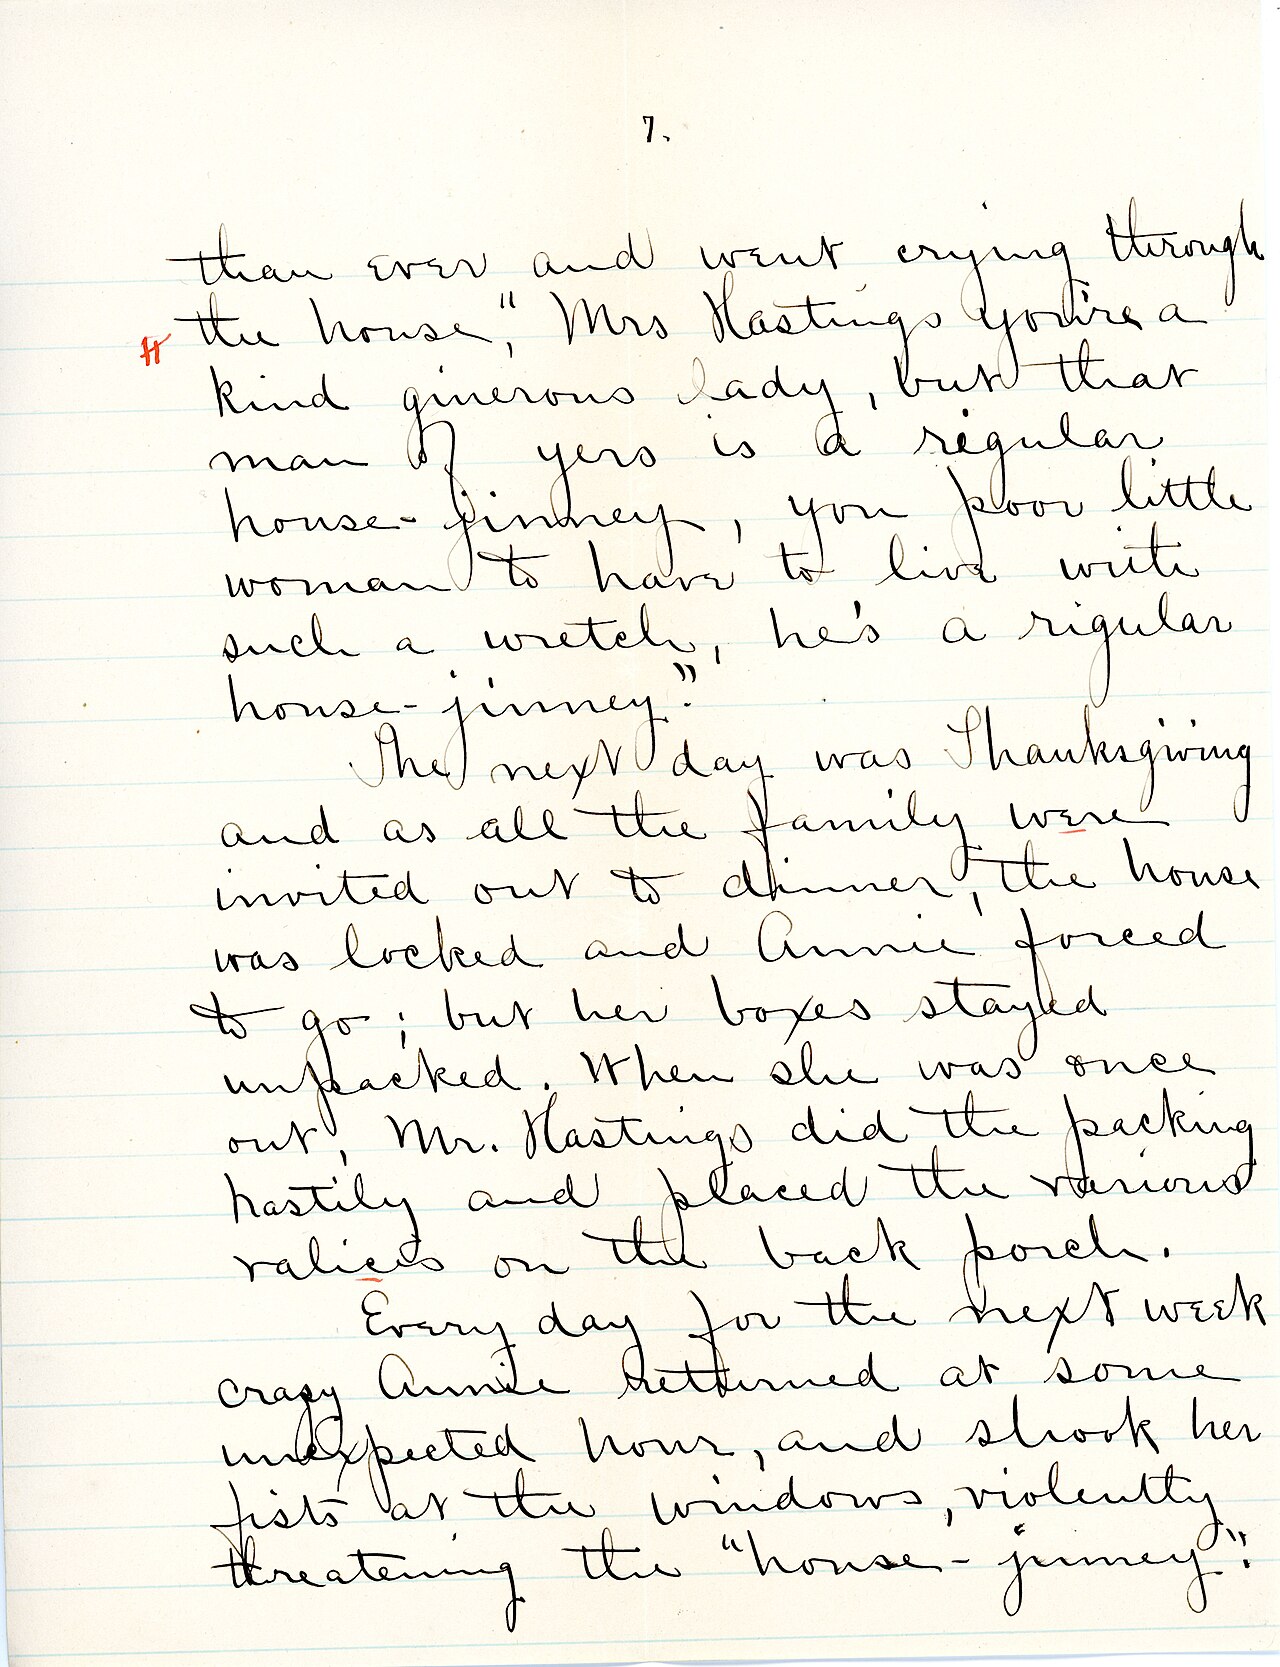 7.
than ever and went crying through
the house," Mrs Hastings you're a
kind ginerous lady, but that
man of yers is a regular
house-jinney, you poor little
woman to have to live wite
such a wretch, he's a rigular
house-jinney."
The next day was Thanksgiving
and as all the family were
invited out to dinner, the house
was locked and Annie forced
to go; but her boxes stayed
unpacked. When she was once
out, Mr. Hastings did the packing
hastily and placed the various
valices on the back porch.
Every day for the next week
crazy Annie returned at some
unexpected hour, and shook her
fists at the windows, violently
threatening the "house-jinney".